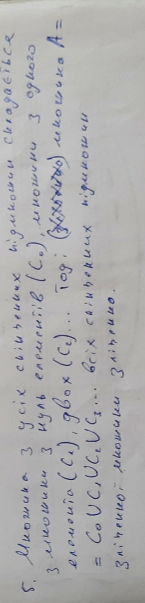 5. Множина з усіх скінчених підмножин складається
з множини з нуль елементів (C₀), множини з одного
елемента (C₁), двох (C₂)... Тоді множина A =
= C₀ ∪ C₁ ∪ C₂ ∪ C₃ ... всіх скінчених підмножин
зліченної множини зліченна.